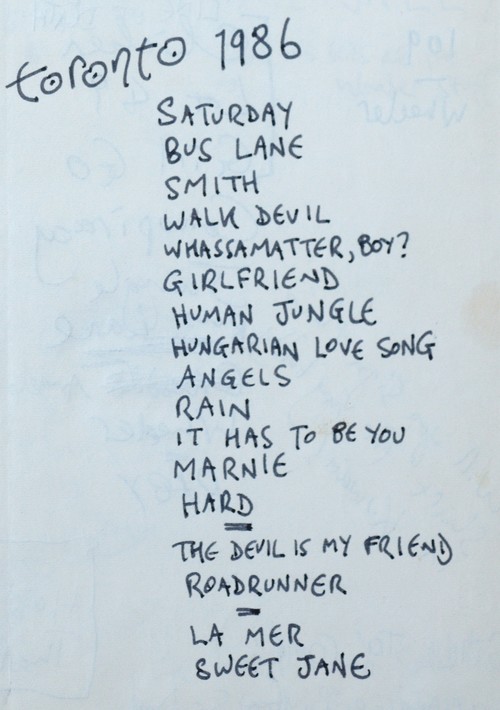 toronto 1986
SATURDAY
BUS LANE
SMITH
WALK DEVIL
WHASSAMATTER, BOY?
GIRLFRIEND
HUMAN JUNGLE
HUNGARIAN LOVE SONG
ANGELS
RAIN
IT HAS TO BE YOU
MARNIE
HARD
THE DEVIL IS MY FRIEND
ROADRUNNER
LA MER
SWEET JANE